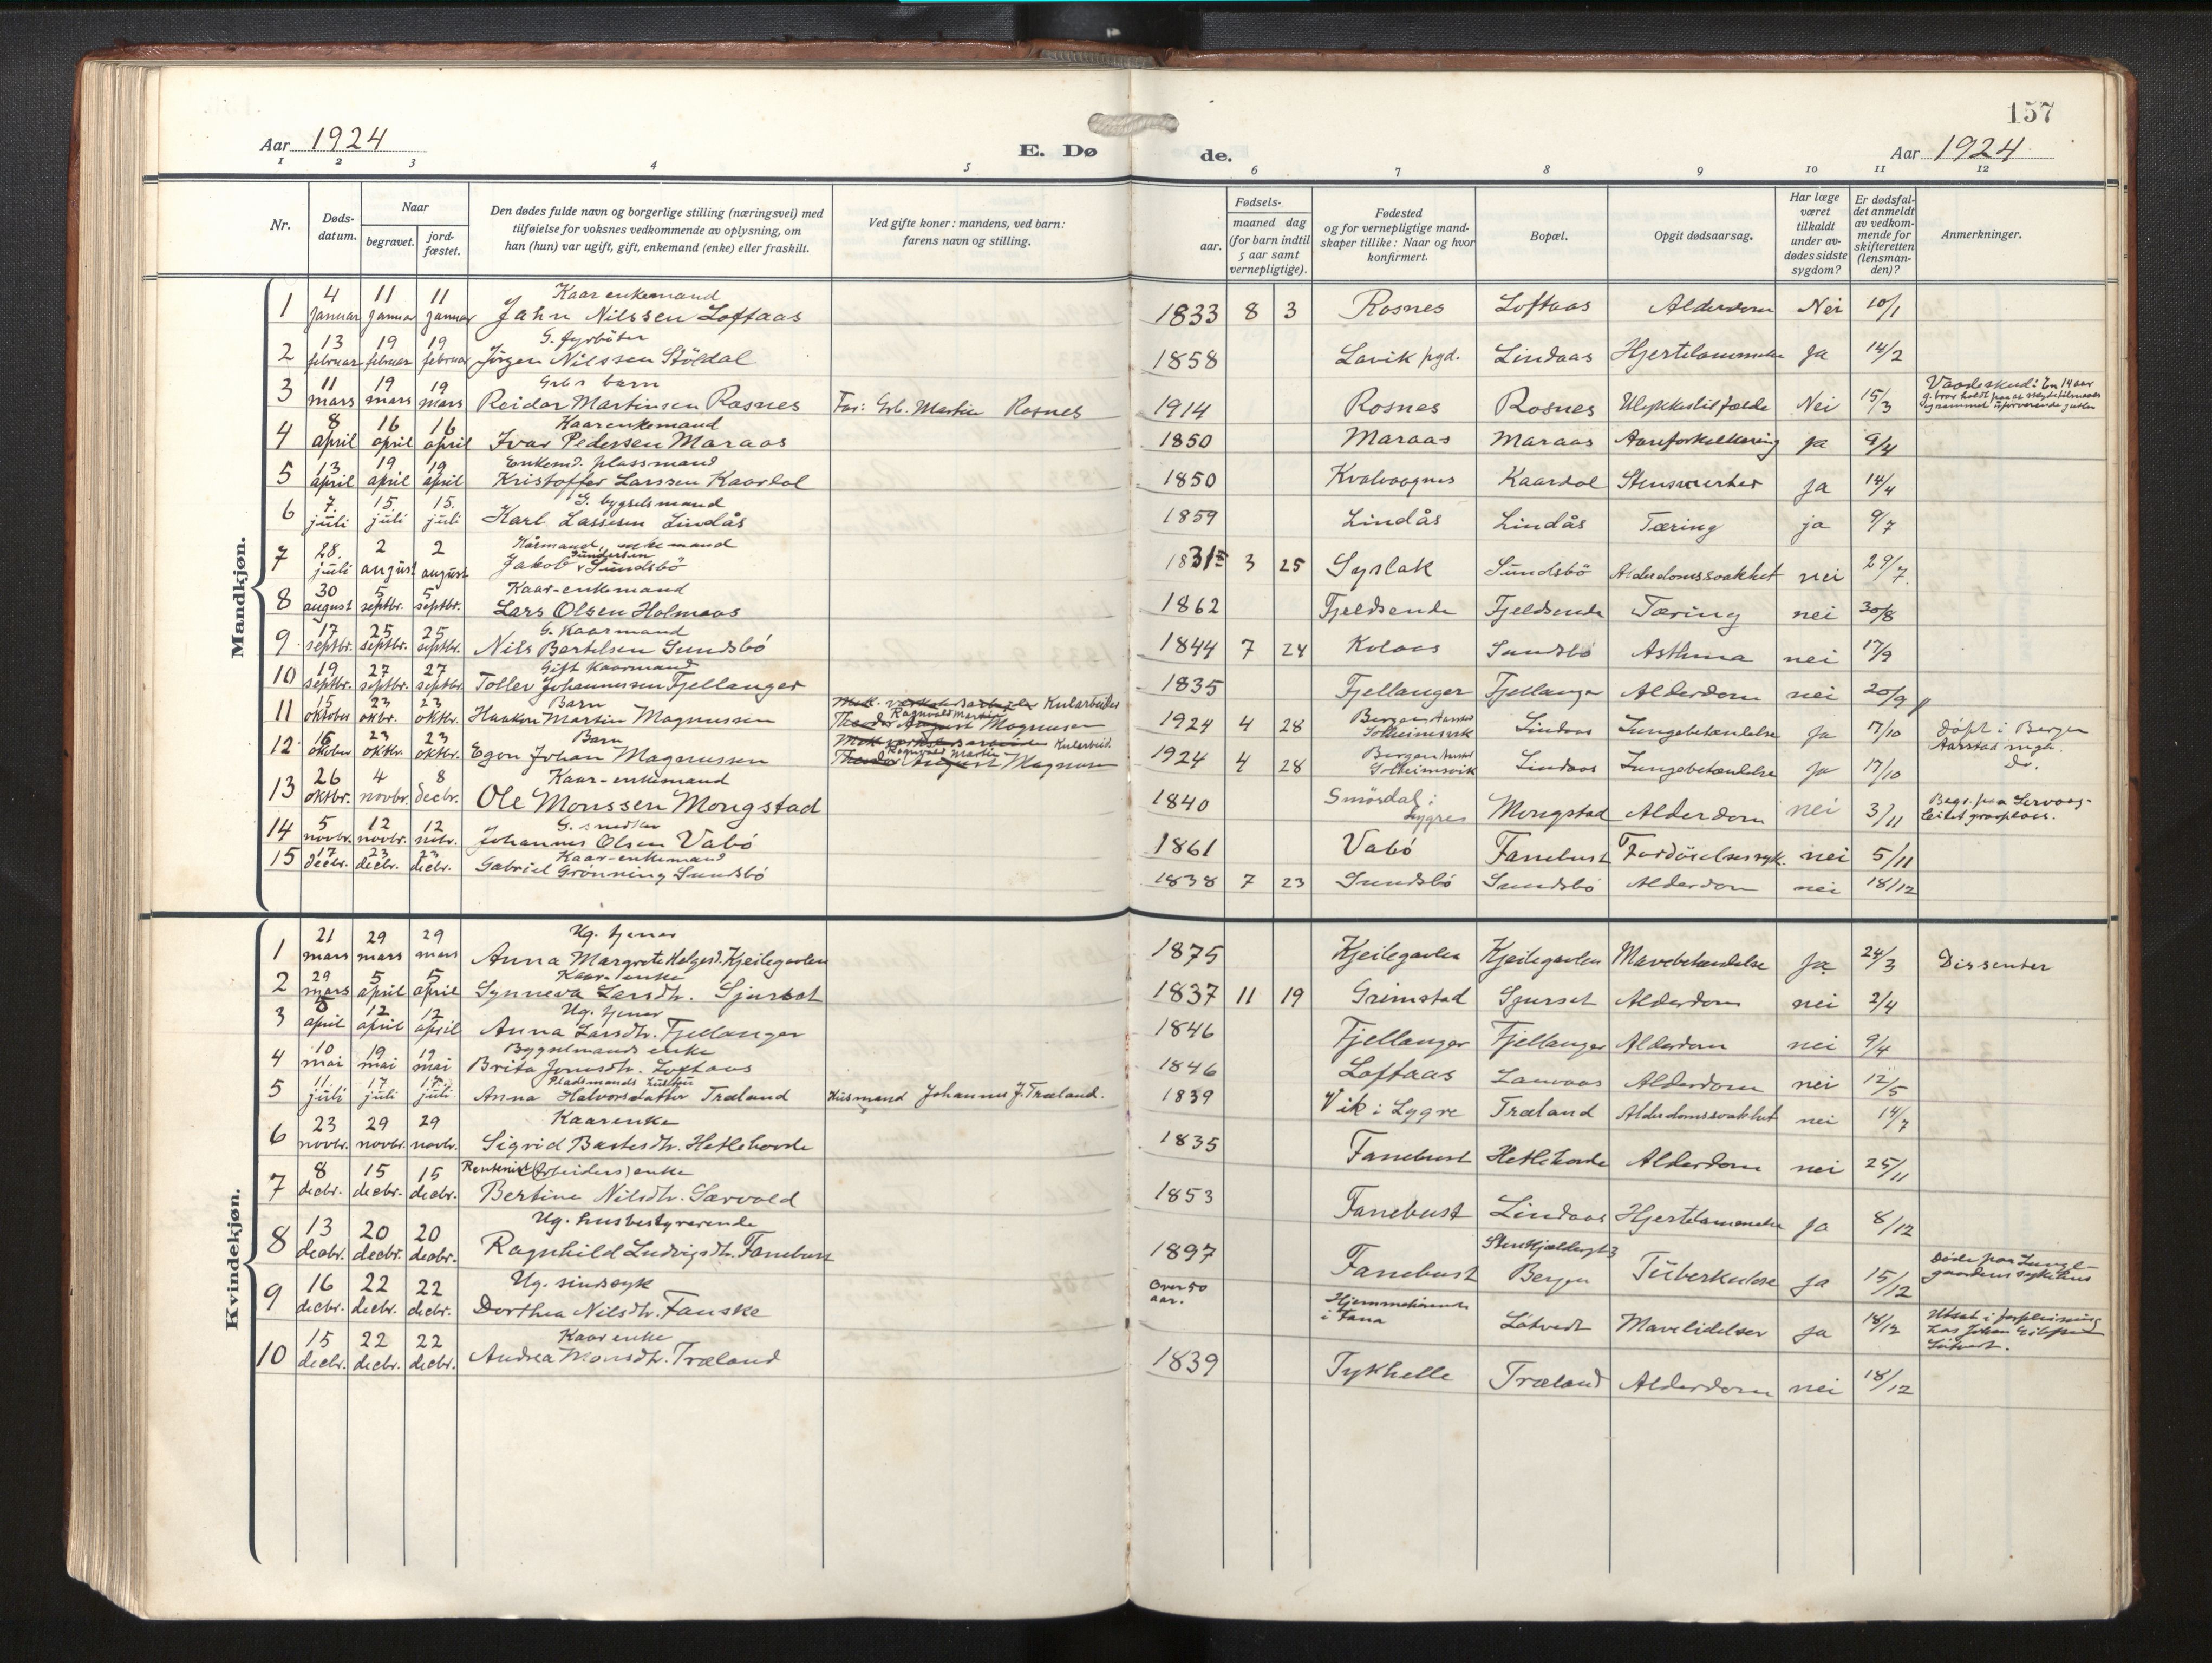 157
Aar 1924
E. Dø
de.
Aar 1924
1 2 3 4 5 6 7 8 9 10 11 12
Nr.
Døds-
datum.
Naar
begravet.
jord-
fæstet.
Den dødes fulde navn og borgerlige stilling (næringsvei) med
tilføielse for voksnes vedkommende av oplysning, om
han (hun) var ugift, gift, enkemand (enke) eller fraskilt.
Ved gifte koner: mandens, ved barn:
farens navn og stilling.
Fødsels-
aar.
maaned dag
(for barn indtil
5 aar samt
vernepligtige).
Fødested
og for vernepligtige mand-
skaper tillike: Naar og hvor
konfirmert.
Bopæl.
Opgit dødsaarsag.
Har læge
været
tilkaldt
under av-
dødes sidste
sygdom?
Er dødsfal-
det anmeldt
av vedkom-
mende for
skifteretten
(lensman-
den)?
Anmerkninger.
Mandkjøn.
Kaar enkemand
1 4 januar 11 januar 11 januar Jahn Nilssen Loftaas 1833 8 3 Rosnes Loftaas Alderdom Nei 10/1
G. fyrbøter
2 13 februar 19 februar 19 februar Jørgen Nilssen Stöldal 1858 Lavik pgd. Lindaas Hjertelammelse Ja 14/2
Grbr. barn
3 11 mars 19 mars 19 mars Reidar Martinsen Rosnes Far: Grb. Martin Rosnes 1914 Rosnes Rosnes Ulykkestilfælde Nei 15/3 Vaadeskud: En 14 aar
g. bror holdt paa at
Kaarenkemand
4 8 april 16 april 16 april Ivar Pedersen Maraas 1850 Maraas Maraas Aareforkalkning Ja 9/4
Enkemd. plassmand
5 13 april 19 april 19 april Kristoffer Larssen Kaardal 1850 Kvalvaagnes Kaardal Stensmerter Ja 14/4
G. bygselmand
6 7. juli 15. juli 15. juli Karl Lassesen Lindås 1859 Lindås Lindås Tæring ja 9/7
Kårmand, enkemand
7 28. juli 2 august 2 august Jakob Sündsbö 1831 3 25 Syslak Sündsbö Alderdomssvakhet nei 29/7
Kaar-enkemand
8 30 august 5 septbr. 5 septbr. Lars Olsen Holmaas 1862 Fjeldsende Fjeldsende Tæring nei 30/8
G. Kaarmand
9 17 septbr. 25 septbr. 25 septbr. Nils Bertelsen Sundsbö 1844 7 24 Kolaas Sundsbö Asthma nei 17/9
Gift Kaarmand
10 19 septbr. 27 septbr. 27 septbr. Toller Johannessen Fjellanger 1835 Fjellanger Fjellanger Alderdom nei 20/9
Barn Kularbeider
11 15 oktober 23 oktbr. 23 oktbr. Haakon Martin Magnussen Theodor August Ragnvald Martin Magnusen 1924 4 28 Bergen Aarstad
Solheimsvik Lindaas Lungebetændelse Ja 17/10 Døpt i Bergen
Aarstad mgh.
Barn Kularbeid.
12 16 oktober 23 oktbr. 23 oktbr. Egon Johan Magnussen Theodor August Ragnvald Martin Magnusen 1924 4 28 Bergen Aarstad
Solheimsvik Lindaas Lungebetændelse Ja 17/10 Do.
Kaar-enkemand
13 26 oktbr. 4 novbr. 8 decbr. Ole Monssen Mongstad 1840 Smördal i
Lygre Mongstad Alderdom nei 3/11 Begr. paa Servaag-
leitet gravplass.
G. snedker
14 5 novbr. 12 novbr. 12 nobr. Johannes Olsen Vabö 1861 Vabö Fanebust Fordöielsessyk. nei 5/11
Kaar-enkemand
15 17 decbr. 23 decbr. 23 decbr. Gabriel Grönning Sundsbö 1838 7 23 Sundsbö Sundsbö Alderdom nei 18/12
Kvindekjøn.
Ug. tjener
1 21 mars 29 mars 29 mars Anna Margrete Helgesd. Kjeilegavlen 1875 Kjeilegavlen Kjeilegavlen Mavebetændelse Ja 24/3 Dissenter
Kaar-enke
2 29 mars 5 april 5 april Synneva Larsdtr. Sjurset 1837 11 19 Grimstad Sjurset Alderdom nei 2/4
Ug. tjener
3 5 april 12 april 12 april Anna Larsdtr. Fjellanger 1846 Fjellanger Fjellanger Alderdom nei 9/4
Bygselmands enke
4 10 mai 19 mai 19 mai Brita Jonsdtr. Loftaas 1846 Loftaas Lauvaas Alderdom nei 12/5
Pladsmands hustru
5 11. juli 17 juli 17. juli Anna Halvorsdatter Træland Husmand Johannes J. Træland. 1839 Vik i Lygre Træland Alderdomssvakhet nei 14/7
Kaarenke
6 23 novbr. 29 novbr. 29 novbr. Sigrid Bastesdtr. Hetlehovde 1835 Fanebust Hetlehovde Alderdom nei 25/11
Rentenist (Arbeiders) enke
7 8 decbr. 15 decbr. 15 decbr. Bertine Nilsdtr. Sævold 1853 Fanebust Lindaas Hjertelammelse Ja 8/12
Ug. husbestyrerinde
8 13 decbr. 20 decbr. 20 decbr. Ragnhild Ludvigsdtr. Fanebust 1897 Fanebust Stenkjældergt 3
Bergen Tüberkulose Ja 15/12 Döde paa Lunge-
gaardens sykehus
Ug. sindssyk
9 16 decbr. 22 decbr. 22 decbr. Dorthea Nilsdtr. Fanske Over 50
aar. Hjemmehörende
i Fana Låtvedt Mavelidelser Ja 18/12 Utsat i forpleining
hos Johan Eilifsen
Kaar enke
10 15 decbr. 22 decbr. 22 decbr. Andrea Monsdtr. Træland 1839 Tykhelle Træland Alderdom nei 18/12